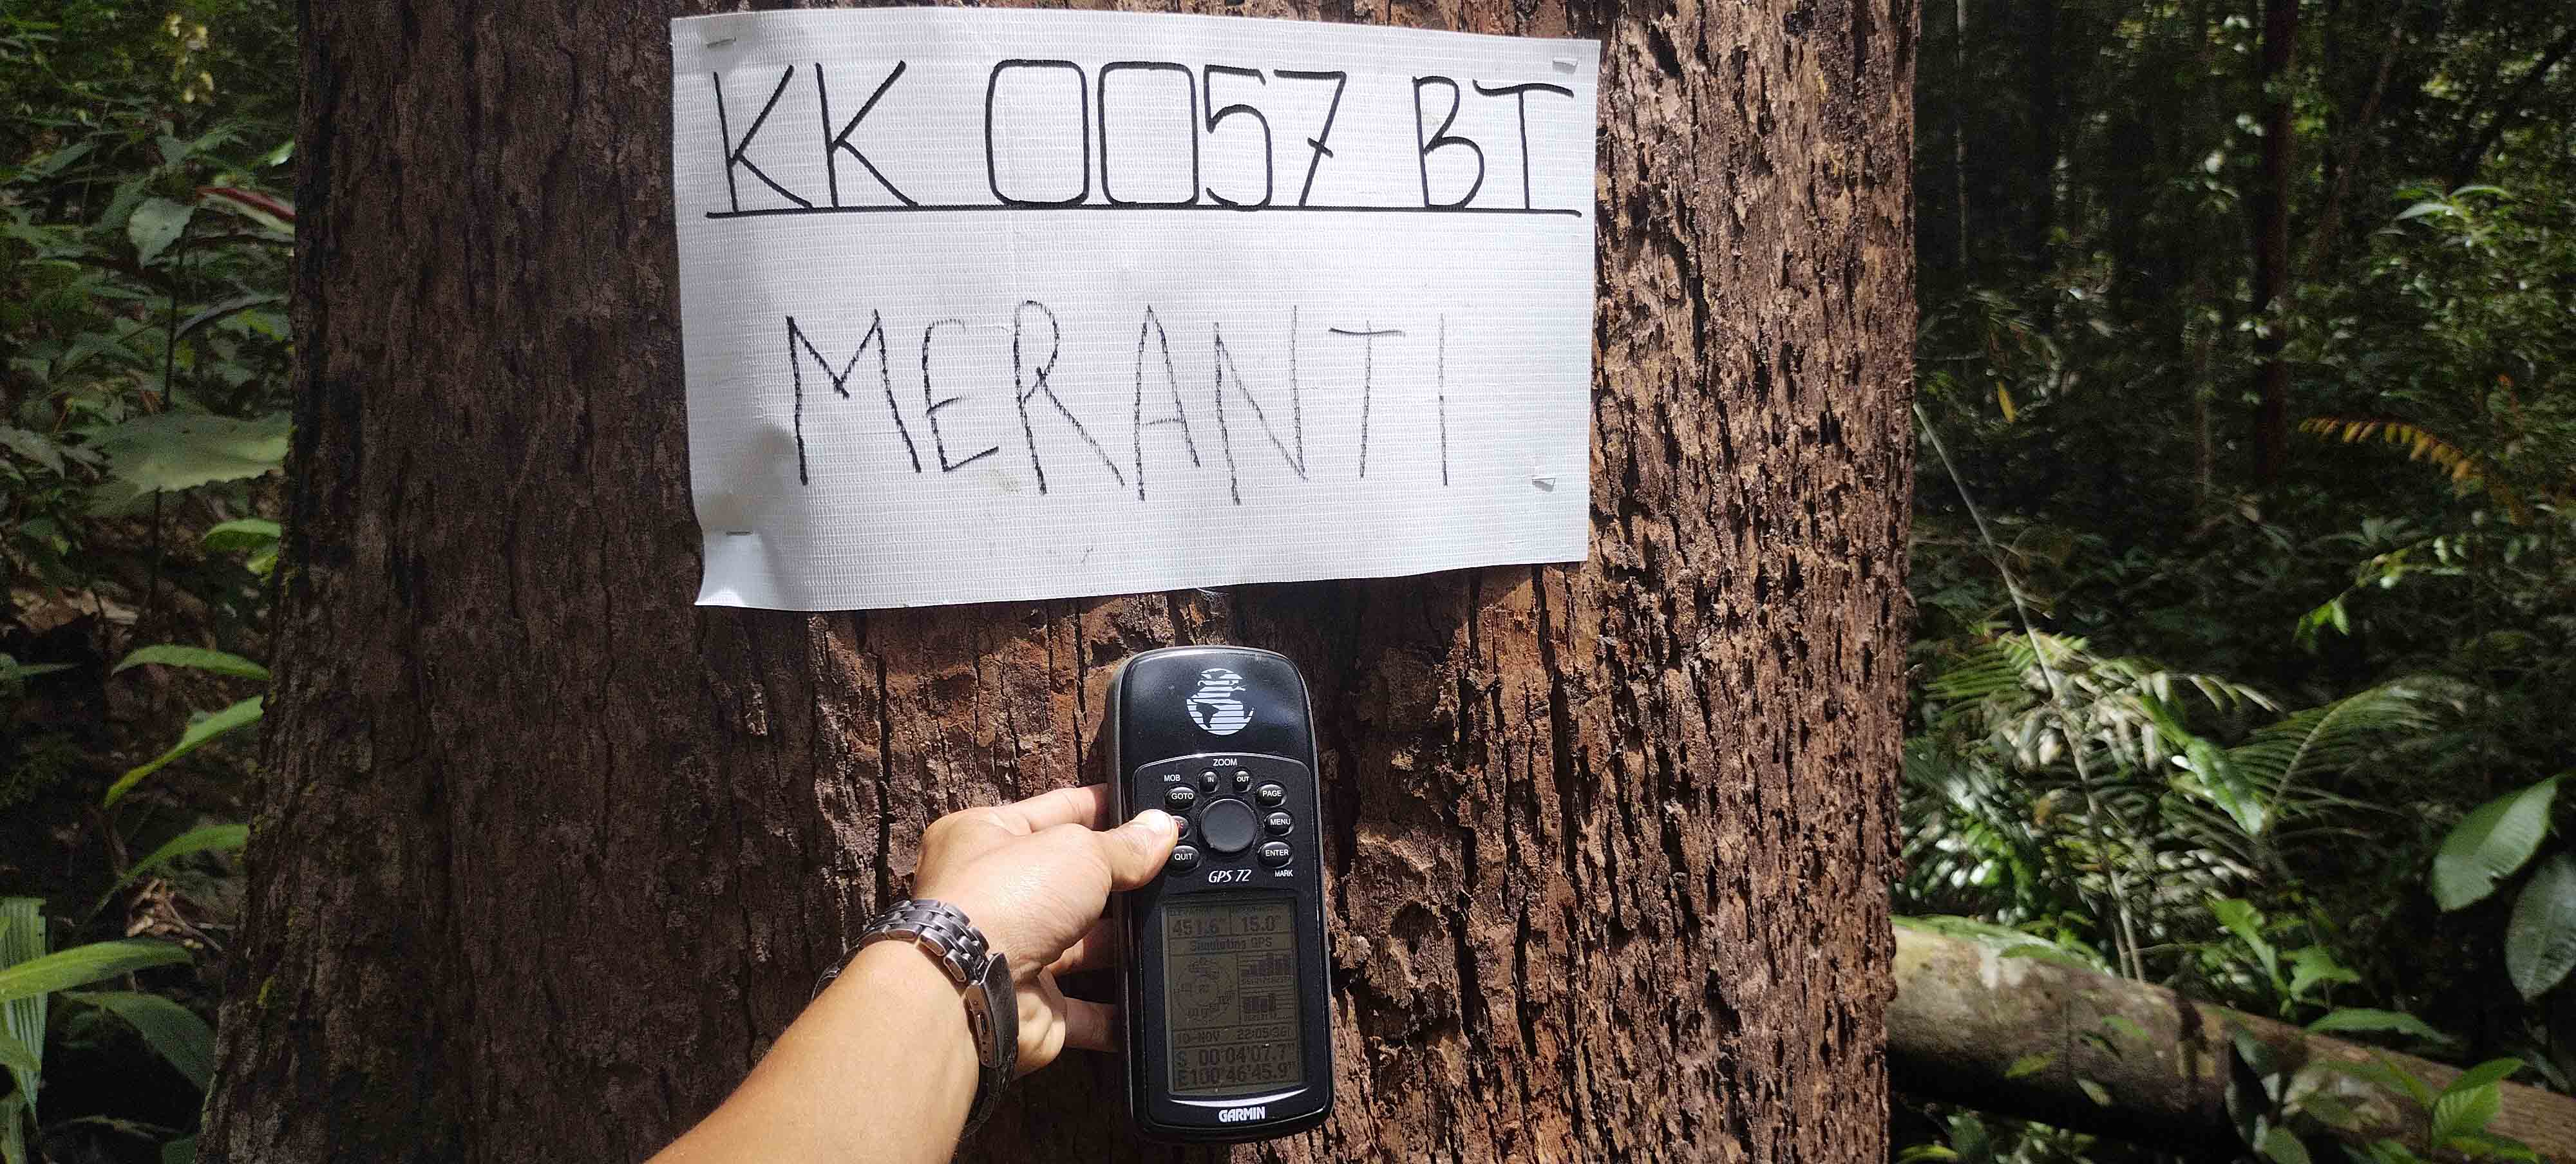 KK 0057 BT
MERANTI
ZOOM
MOB IN OUT
GOTO PAGE
MENU
QUIT ENTER
GPS 72 MARK
451.6 15.0
Simulating GPS
10-NOV 22:05:36
S 00°04'07.7"
E100°46'45.9"
GARMIN